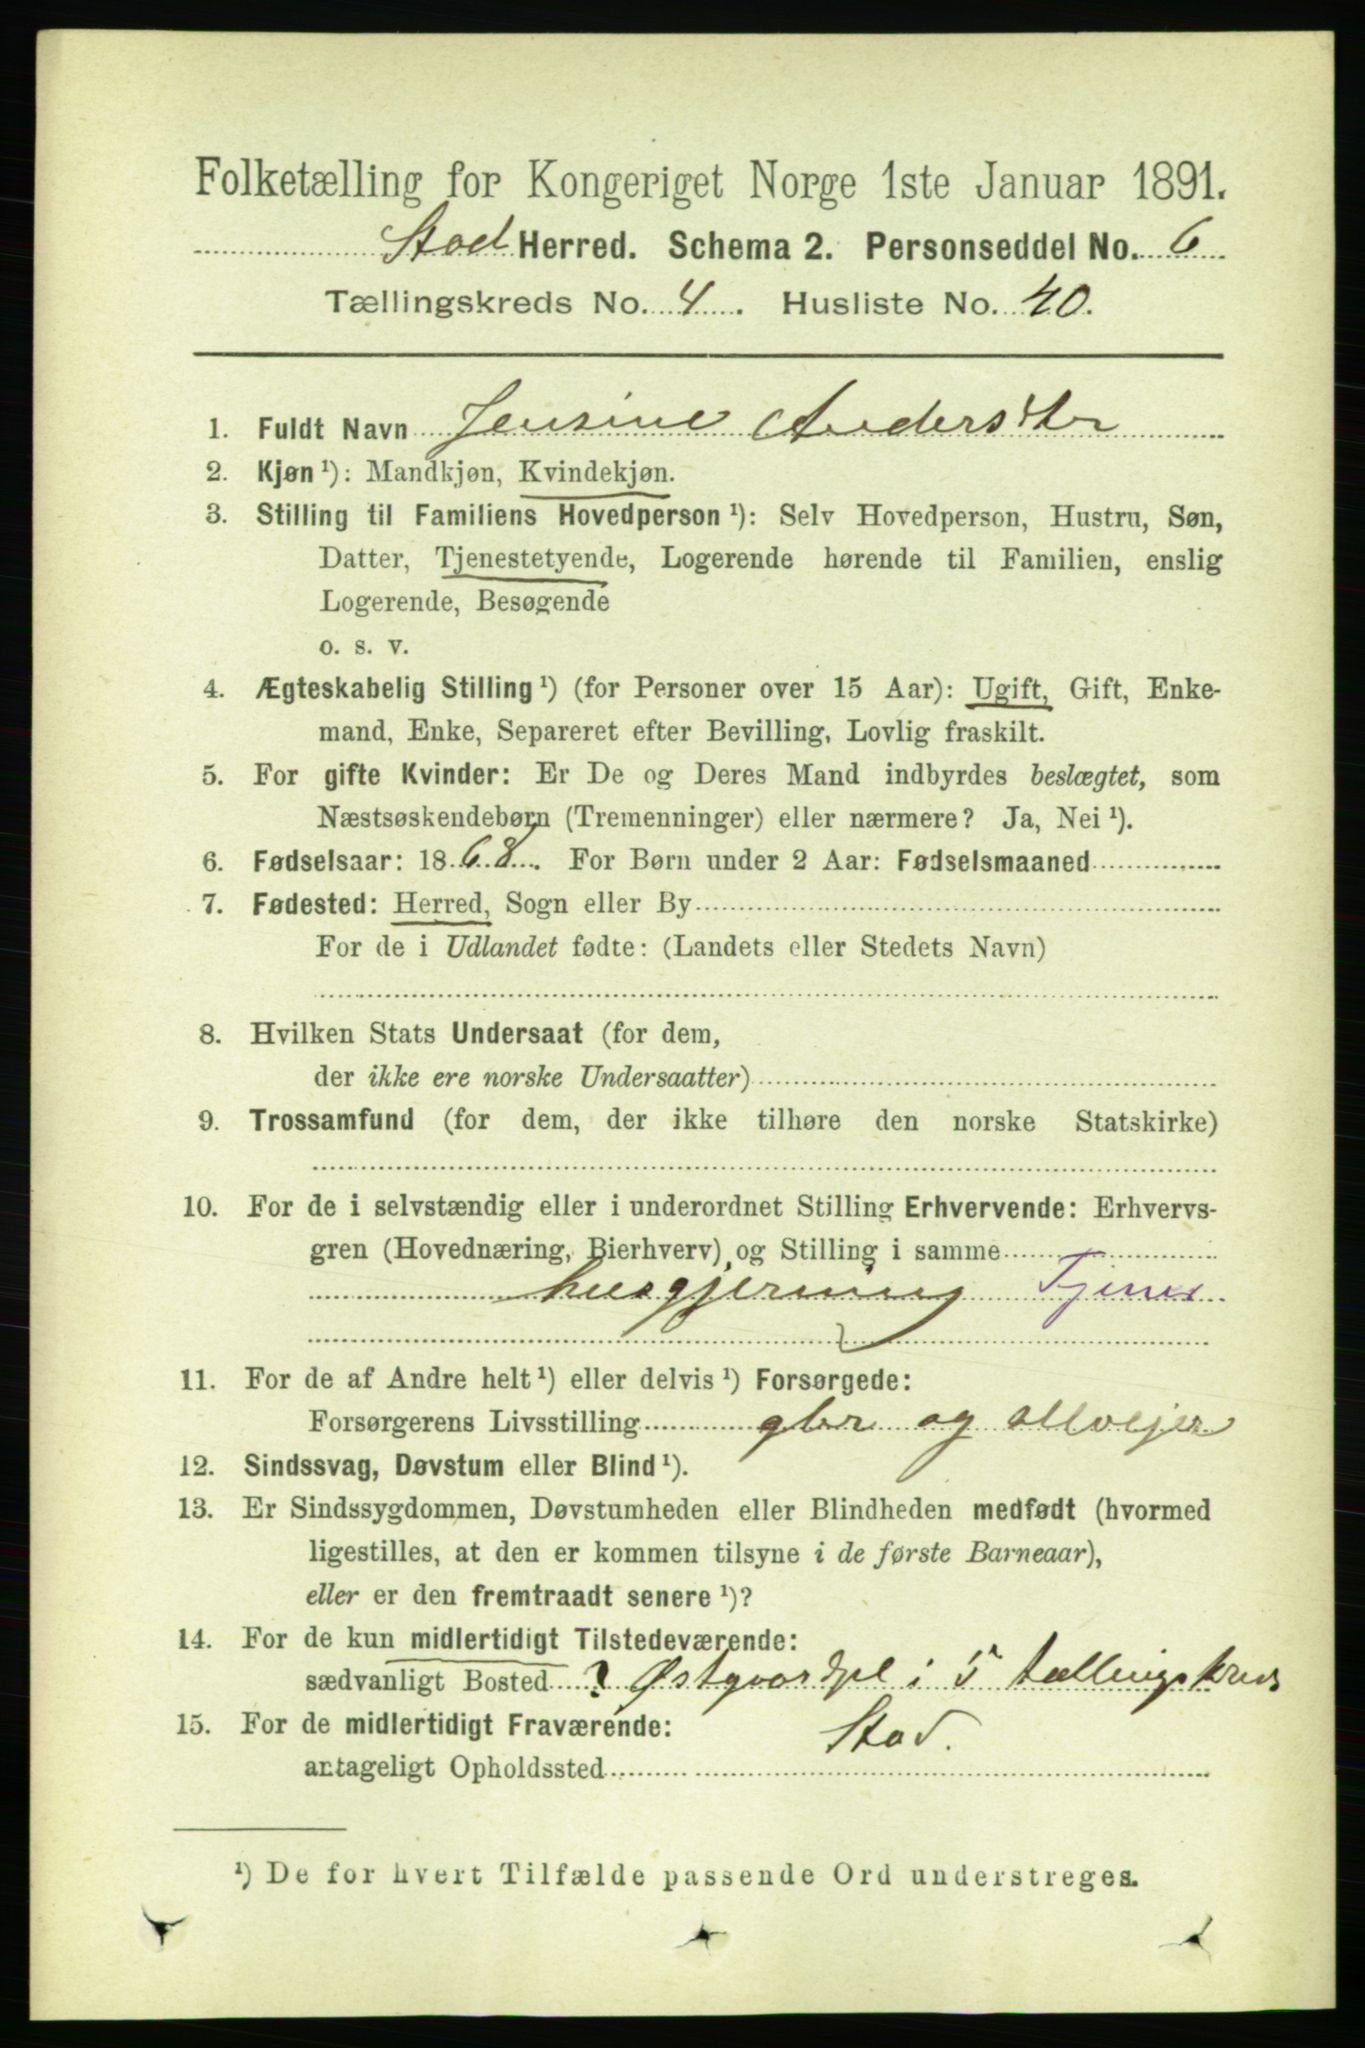 Folketælling for Kongeriget Norge 1ste Januar 1891.
Stod Herred. Schema 2. Personseddel No. 6
Tællingskreds No. 4. Husliste No. 40.
1. Fuldt Navn Jensine Andersdtr
2. Kjøn ¹): Mandkjøn, Kvindekjøn.
3. Stilling til Familiens Hovedperson ¹): Selv Hovedperson, Hustru, Søn,
Datter, Tjenestetyende, Logerende hørende til Familien, enslig
Logerende, Besøgende
o. s. v.
4. Ægteskabelig Stilling ¹) (for Personer over 15 Aar): Ugift, Gift, Enke-
mand, Enke, Separeret efter Bevilling, Lovlig fraskilt.
5. For gifte Kvinder: Er De og Deres Mand indbyrdes beslægtet, som
Næstsøskendebørn (Tremenninger) eller nærmere? Ja, Nei ¹).
6. Fødselsaar: 1868. For Børn under 2 Aar: Fødselsmaaned
7. Fødested: Herred, Sogn eller By
For de i Udlandet fødte: (Landets eller Stedets Navn)
8. Hvilken Stats Undersaat (for dem,
der ikke ere norske Undersaatter)
9. Trossamfund (for dem, der ikke tilhøre den norske Statskirke)
10. For de i selvstændig eller i underordnet Stilling Erhvervende: Erhvervs-
gren (Hovednæring, Bierhverv) og Stilling i samme
husgjerning Tjener
11. For de af Andre helt ¹) eller delvis ¹) Forsørgede:
Forsørgerens Livsstilling gbr og selvejer
12. Sindssvag, Døvstum eller Blind ¹).
13. Er Sindssygdommen, Døvstumheden eller Blindheden medfødt (hvormed
ligestilles, at den er kommen tilsyne i de første Barneaar),
eller er den fremtraadt senere ¹)?
14. For de kun midlertidigt Tilstedeværende:
sædvanligt Bosted ? Østgvordpl i 5 tællingskreds
15. For de midlertidigt Fraværende: Stod.
antageligt Opholdssted
¹) De for hvert Tilfælde passende Ord understreges.